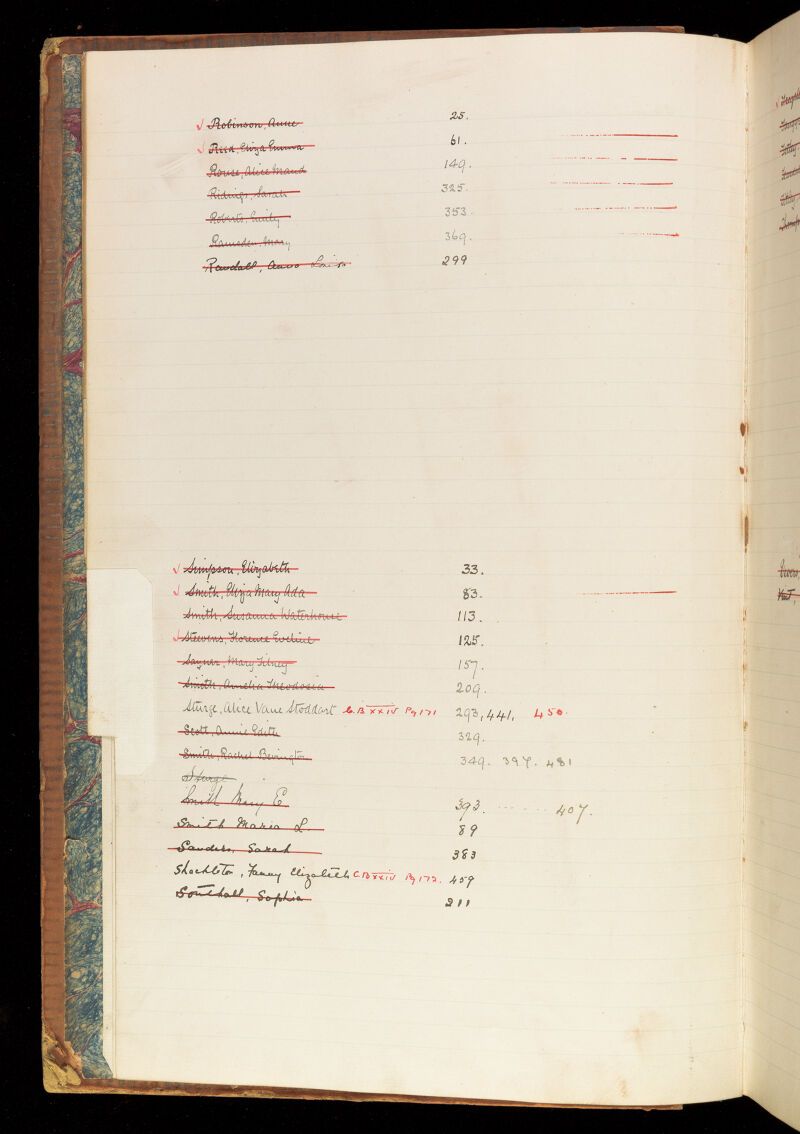 Robinson, Anne 25.
Reed, Eliza Emma 61.
Rouse, Alice Maud 149.
Ridings, Sarah 325.
Roberts, Emily 353.
Ramsden, Mary 369.
Randall, Anna Louisa 299
Simpson, Elizabeth 33.
Smith, Eliza Mary Ada 83.
Smith, Susanna Waterhouse 113.
Steevens, Florence Eveline 125.
Sayner, Mary Tilney 157.
Smith, Amelia Theodosia 209.
Sturge, Alice Vane Stoddart C.B XXIV Pg 171 293, 441, 450.
Scott, Annie Edith 329.
Smith, Rachel Bevington 349. 397. 481
Sturge
Smith Mary E 393. 407.
Smith Maria L. 89
Sanders, Sarah 383
Shackleton, Fanny Elizabeth C.B XXIV Pg 172. 459
Southall, Sophia 211